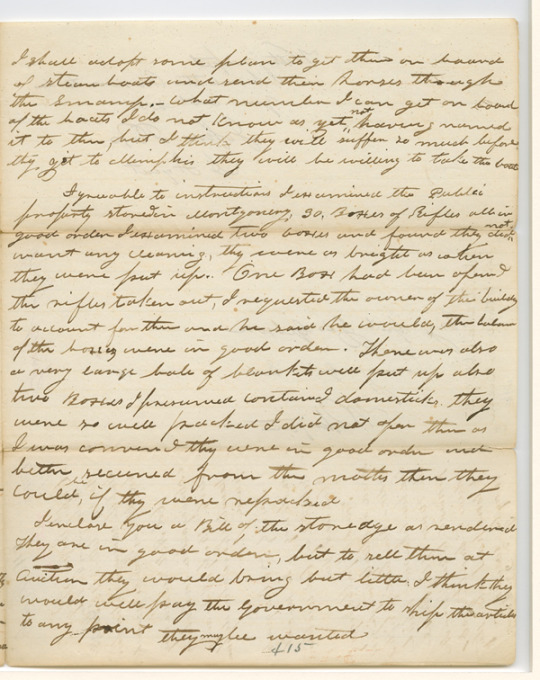 I shall adopt some plan to get them on board
of steam boats and send their horses through
the Swamp. - What number I can get on board
of the boats I do not know as yet not having named
it to them, but I think they will suffer so much before
thy get to Memphis they will be willing to take the boat
Agreeable to instructions I examined the Public
property stored in Montgomery, 30, Boxes of Rifles all in
good order I examined two boxes and found they did not
want any cleaning, thy were as bright as when
they were put up. One Box had been opend
the rifles taken out, I requested the owner of the building
to account for them and he said he would, the balance
of the boxes were in good order. There was also
a very large bale of blankets well put up also
two Boxes I presumed containd domesticks. they
were so well packed I did not open them as
I was convinced thy were in good order and
better secured from the moths then they
could be, if thy were repacked
I enclose you a Bill of the storedge as rendered
They are in good order, but to sell them at
Auction they would bring but little I think they
would well pay the Government to ship the articles
to any point they may be wanted
415